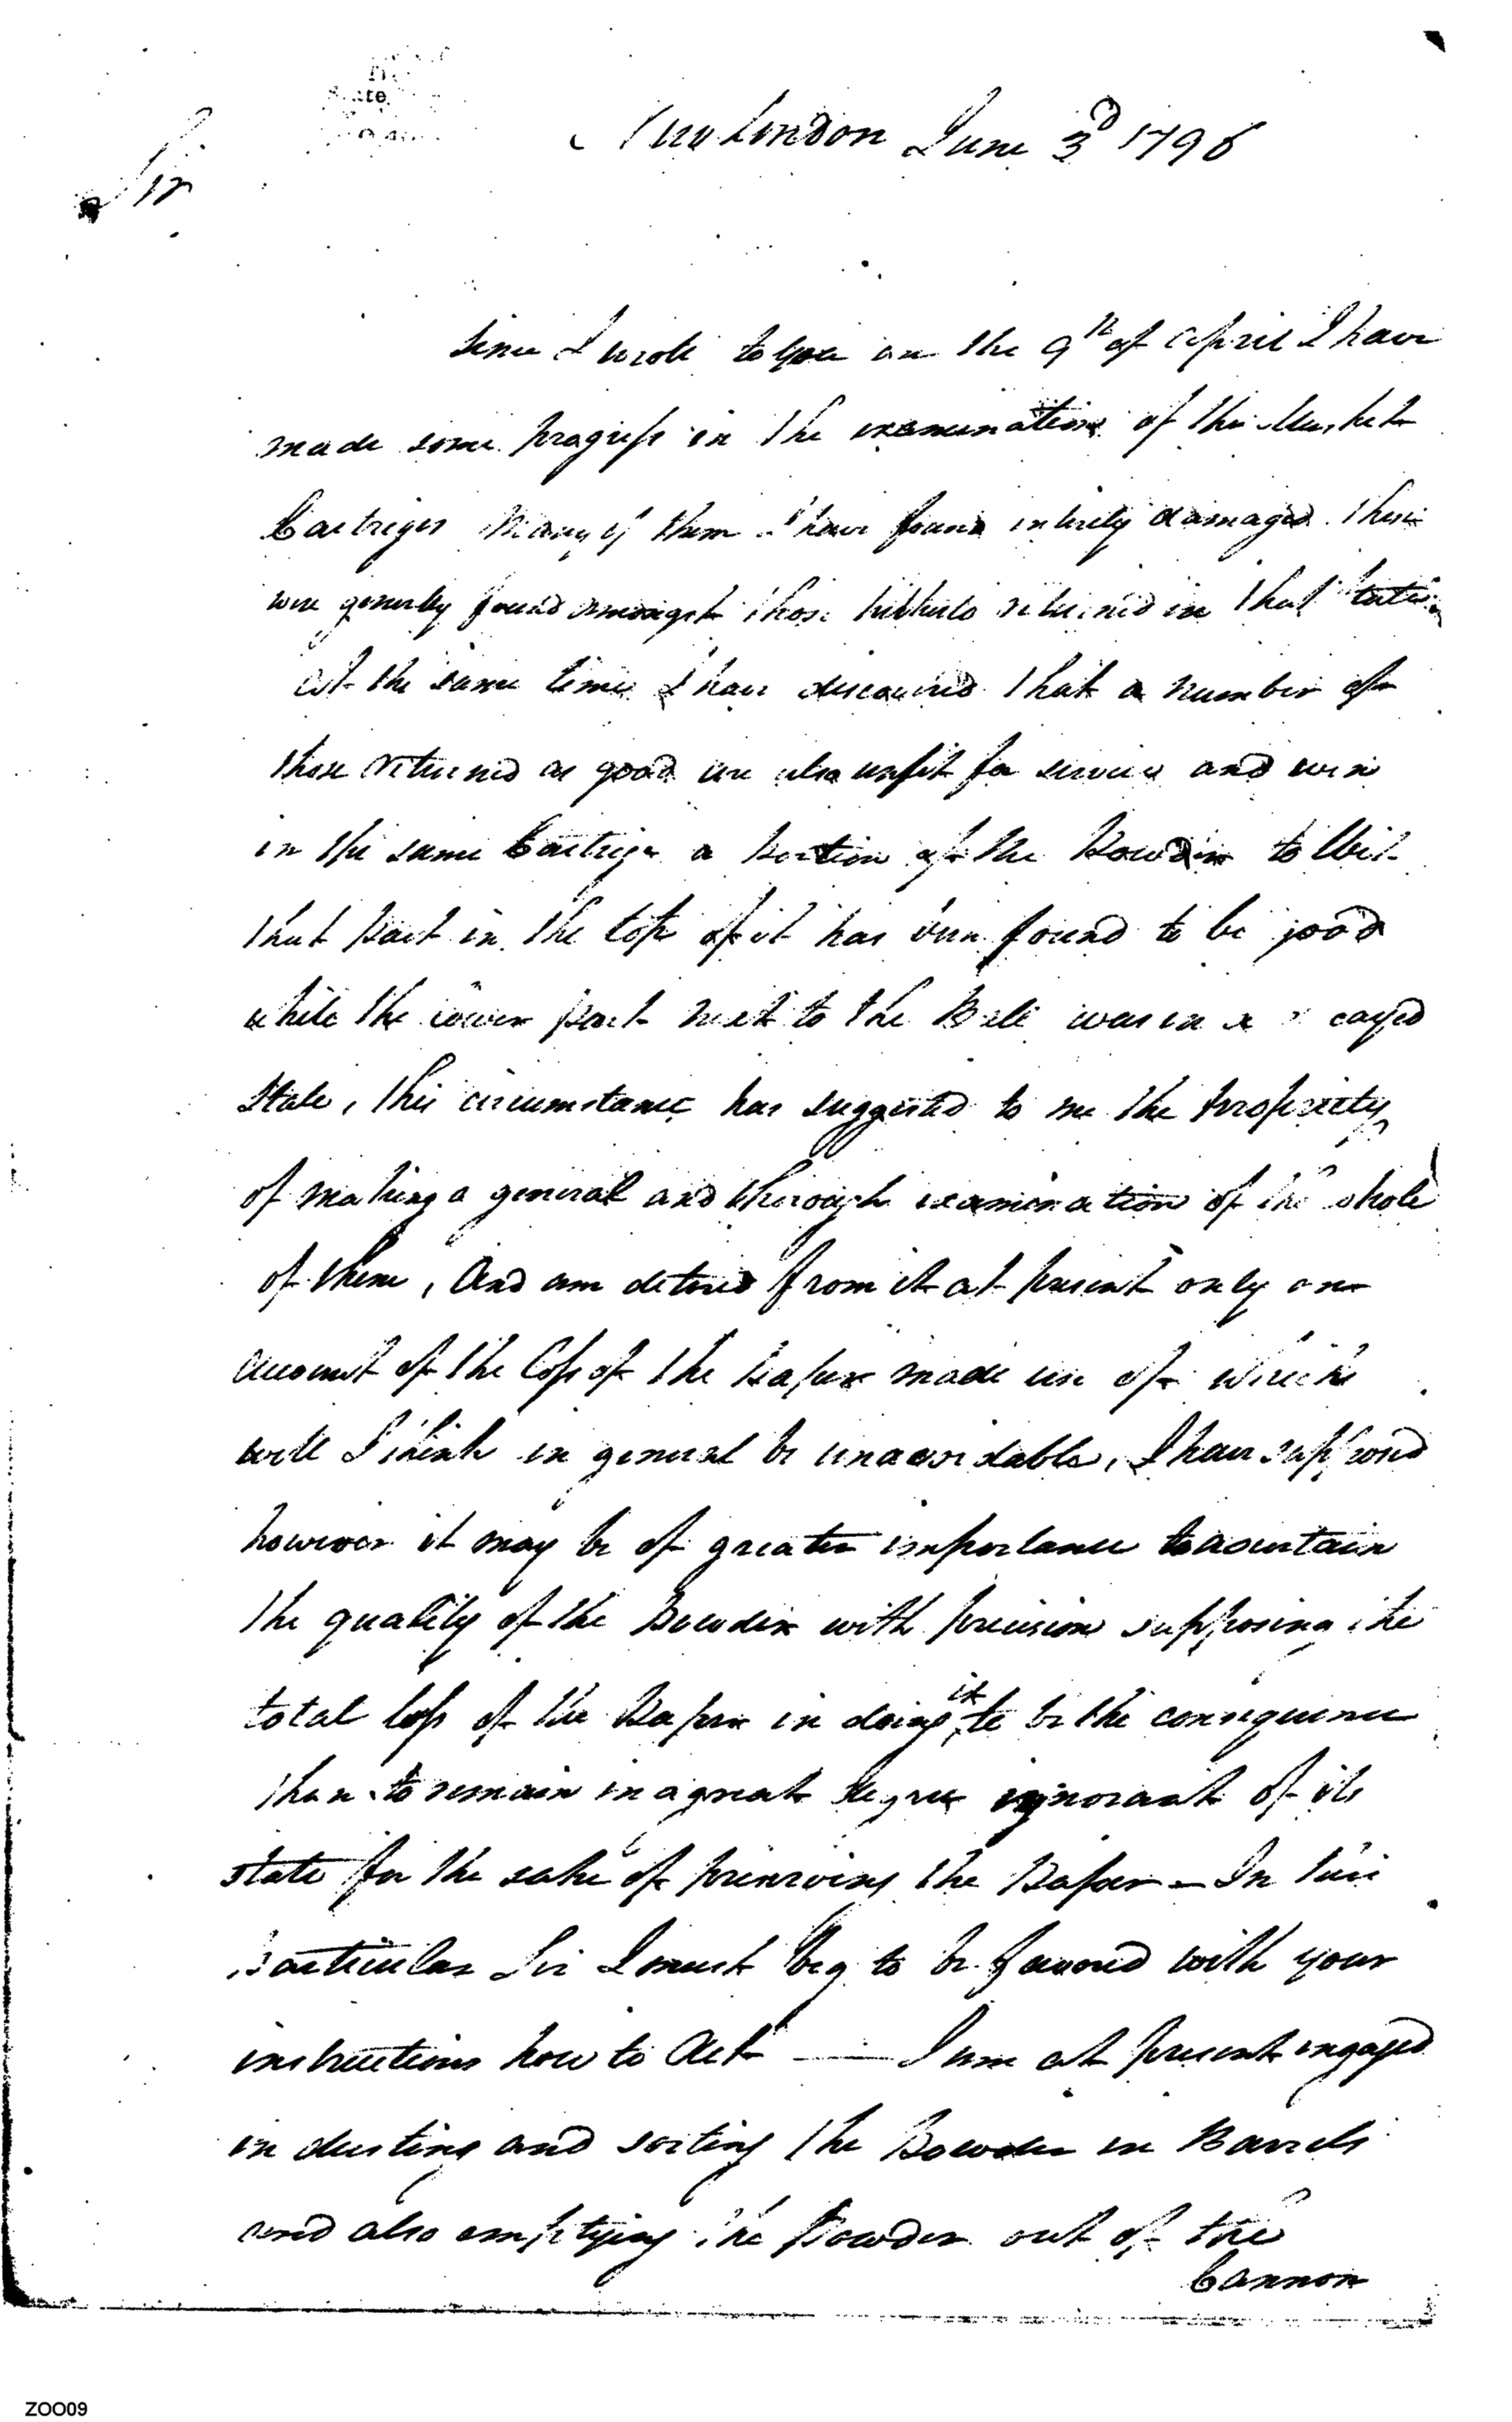 New London June 3d 1796
Sir
Since I wrote to you on the 9th of April I have
made some progress in the examination of the Musket
Cartriges Many of them I have found intirely damaged. these
were generally found amongst those hitherto returned in that state
at the same time I have discovered that a number of
those returned as good are also unfit for service and even
in the same Cartrige a Portion of the Powder to Wit
that part in the top of it has been found to be good
while the lower part next to the Ball was in a decayed
State, this circumstance has suggested to me the propriety
of making a general and thorough examination of the whole
of them, And am detered from it at present only on
account of the Loss of the Paper made use of which
will I think in general be unavoidable, I have supposed
however it may be of greater importance to ascertain
the quality of the Powder with precision supposing the
total loss of the Paper in doing it to be the consequence
than to remain in a great degree ignorant of its
state for the sake of preserving the Paper — In this
particular Sir I must beg to be favored with your
instructions how to Act — I am at present engaged
in dusting and sorting the Powder in Barrels
and also emptying the Powder out of the
Cannon
ZOO09